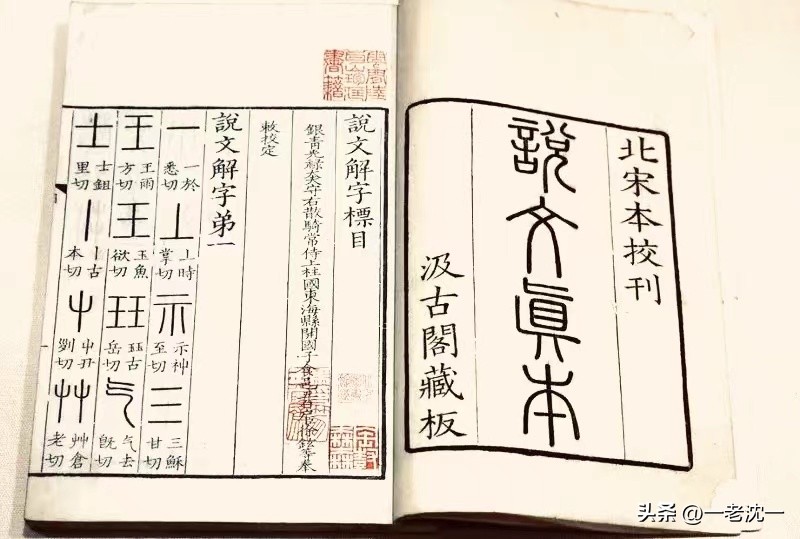 北宋本挍刊
說文眞本
汲古閣藏板
說文解字標目
銀青光祿大夫守右散騎常侍上柱國東海縣開國子食邑五百戶臣徐鉉等奉
敕挍定
說文解字弟一
一 一於悉切 丄 上時掌切 示 示神至切 三 三穌甘切
王 王雨方切 玉 玉魚欲切 玨 玨古岳切 气 气去旣切
士 士鉏里切 丨 丨古本切 屮 屮丑列切 艸 艸倉老切
头条 @一老沈一